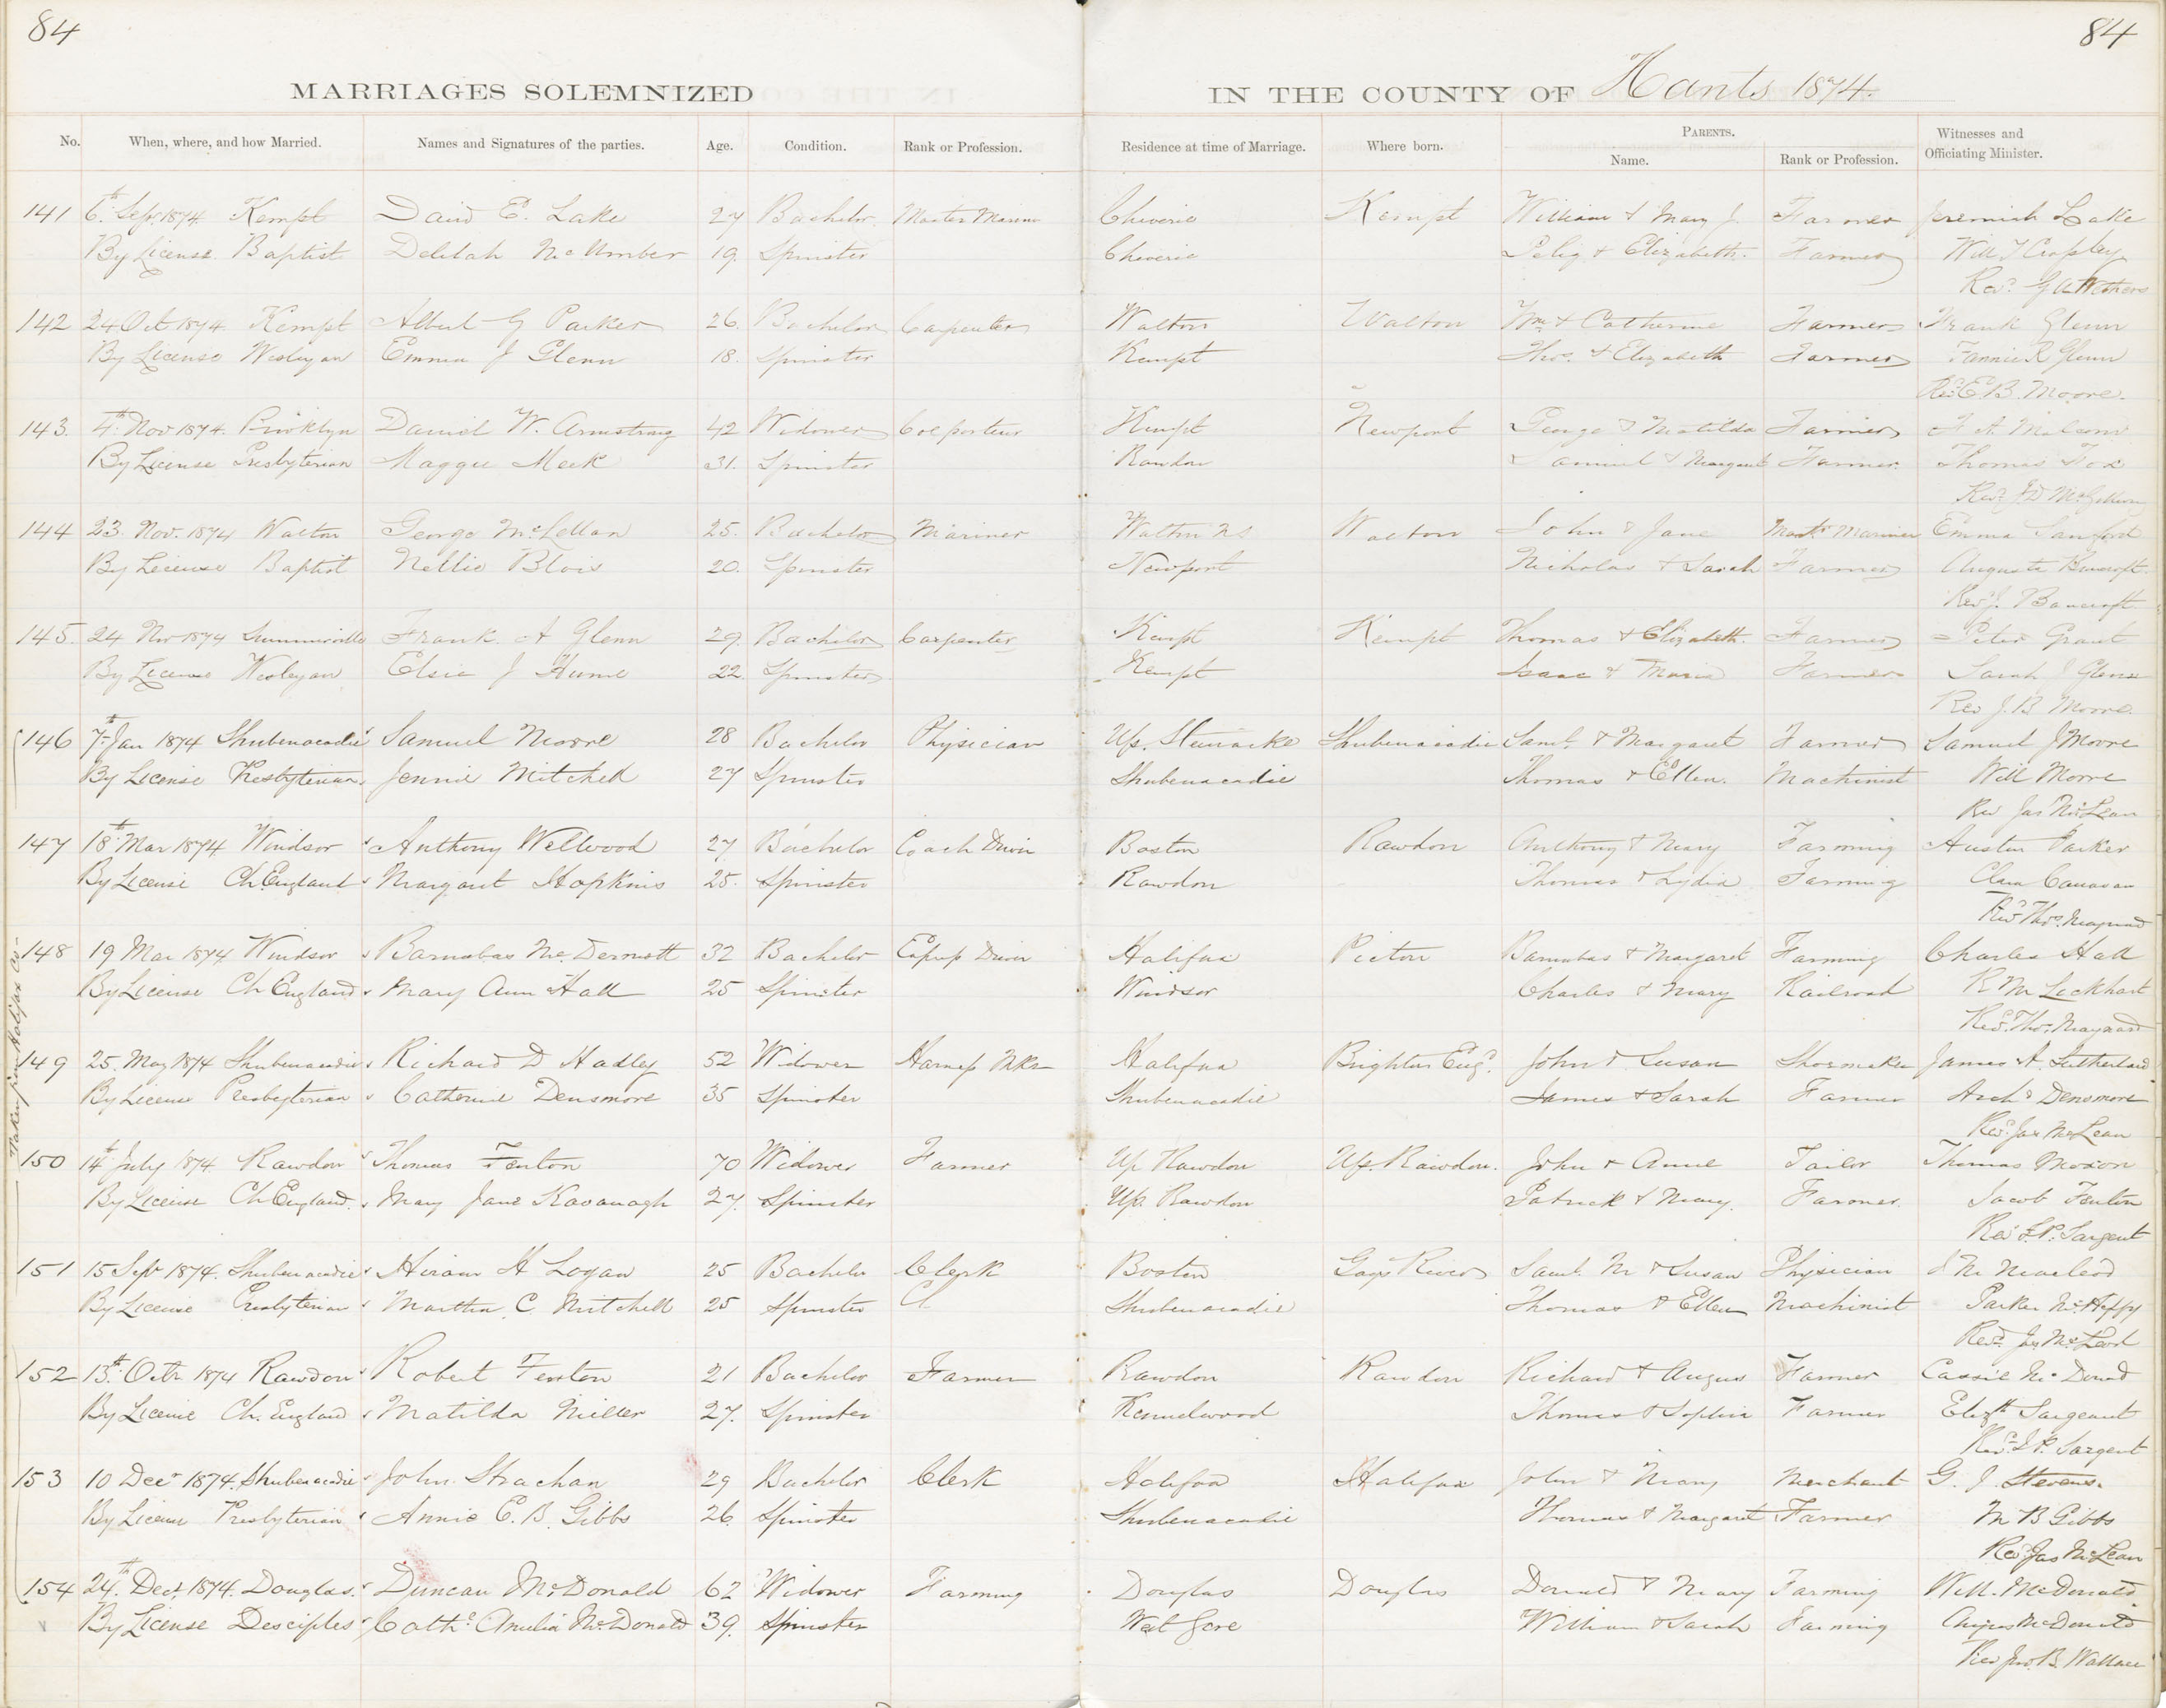 84
84
MARRIAGES SOLEMNIZED IN THE COUNTY OF Hants 1874.
No. When, where, and how Married. Names and Signatures of the parties. Age. Condition. Rank or Profession. Residence at time of Marriage. Where born. PARENTS. Name. Rank or Profession. Witnesses and Officiating Minister.
141 6th Sept 1874 Kempt David E. Lake 27 Bachelor Master Marine Cheverie Kempt William & Mary J. Farmer Jeremiah Lake
By License Baptist Delilah McUmber 19 Spinster Cheverie Pelig & Elizabeth Farmer Will
Revd
142 24 Oct 1874 Kempt Albert G Parker 26 Bachelor Carpenter Walton Walton Wm & Catherine Farmer Frank Glenn
By License Wesleyan Emma J Glenn 18 Spinster Kempt Thos. & Elizabeth Farmer Fannie R Glenn
Revd E. B. Moore.
143. 4th Nov 1874 Brooklyn Daniel W. Armstrong 42 Widower Colporteur Kempt Newport George & Matilda Farmer
By License Presbyterian Maggie Meek 31. Spinster Rawdon Samuel & Margaret Farmer Thomas Fox
Revd J D McGillivry
144 23. Nov. 1874 Walton George McLellan 25. Bachelor Mariner Walton NS Walton John & Jane Mastr Mariner Emma Sanford
By License Baptist Nellie Blois 20. Spinster Newport Nicholas & Sarah Farmer Augusta Bancroft.
Revd J. Bancroft
145. 24 Nov 1874 Summerville Frank A Glenn 29. Bachelor Carpenter Kempt Kempt Thomas & Elizabeth Farmer Peter Grant
By License Wesleyan Elsie J Hume 22. Spinster Kempt Isaac & Maria Farmer Sarah J Glenn
Rev J. B Moore.
146 7th Jan 1874 Shubenacadie Samuel Moore 28 Bachelor Physician Up. Stewiacke Shubenacadie Saml. & Margaret Farmer Samuel J Moore
By License Presbyterian Jennie Mitchell 27 Spinster Shubenacadie Thomas & Ellen. Machinist Will Moore
Rev Jas McLean
147 18th Mar 1874 Windsor Anthony Wellwood 27 Bachelor Coach Driver Boston Rawdon Anthony & Mary Farming Austin Parker
By License Ch England Margaret Hopkins 25. Spinster Rawdon Thomas & Lydia Farming Clara Canavan
Revd Thos. Maynard
148 19 Mar 1874 Windsor Barnabas McDermott 32 Bachelor Express Driver Halifax Pictou Barnabas & Margaret Farming Charles Hall
By License Ch England Mary Ann Hall 25 Spinster Windsor Charles & Mary Railroad R M Lockhart
Revd. Thos. Maynard
149 25. May 1874 Shubenacadie Richard D Hadley 52 Widower Harness Mkr Halifax Brighton Engd. John & Susan Shoemaker James A. Sutherland
By License Presbyterian Catherine Densmore 35 Spinster Shubenacadie James & Sarah Farmer Archd Densmore
Revd. Jas McLean
Taken from Halifax Co
150 14th July 1874 Rawdon Thomas Fenton 70 Widower Farmer Up Rawdon Up. Rawdon. John & Anne Tailor Thomas Moxon
By License Ch England. Mary Jane Kavanagh 27. Spinster Up. Rawdon Patrick & Mary. Farmer Jacob Fenton
Revd J. P. Sargent
151 15 Sept 1874. Shubenacadie Hiram H Logan 25 Bachelor Clerk Boston Gays River Saml. M & Susan Physician J M Macleod
By License Presbyterian Martha C. Mitchell 25 Spinster Cl Shubenacadie Thomas & Ellen Machinist Parker
Revd. Jas McLeod
152 13th Octr 1874 Rawdon Robert Fenton 21 Bachelor Farmer Rawdon Rawdon Richard & Angus Farmer Cassie
By License Ch. England Matilda Miller 27. Spinster Kennelwood Thomas & Sophia Farmer Elizth Sargeant
Revd. J P. Sargent
153 10 Decr 1874. Shubenacadie John Strachan 29 Bachelor Clerk Halifax Halifax John & Mary Merchant G. J. Stevens.
By License Presbyterian Annie E. B. Gibbs 26 Spinster Shubenacadie Thomas & Margaret Farmer M B Gibbs
Revd Jas McLean
154 24th. Dec. 1874. Douglas. Duncan McDonald 62 Widower Farming Douglas Douglas Donald & Mary Farming Will. McDonald.
By License Desciples Cathe Amelia McDonald 39. Spinster West Gore William & Sarah Farming Angus McDonald
Rev Jno B. Wallace